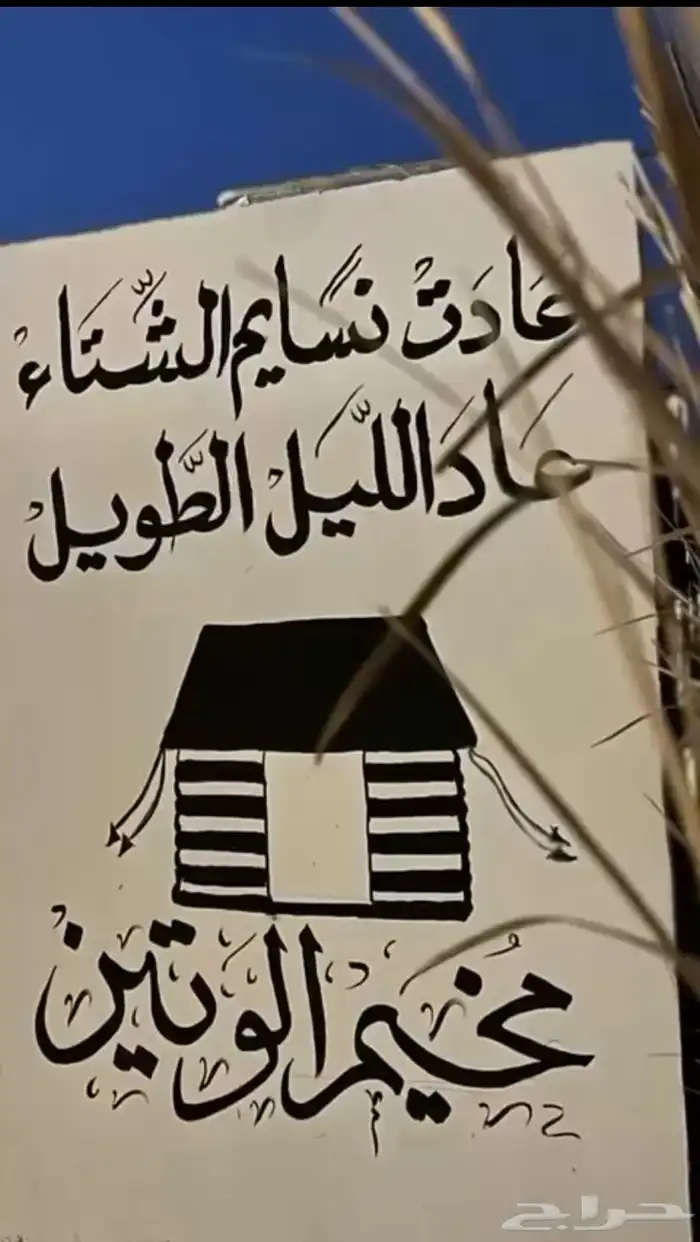 عَادَتْ نَسَايم الشِّتَاءْ
عَادَ اللَّيَلْ الطَّويلْ
مُخيم الوَتينْ
حراج